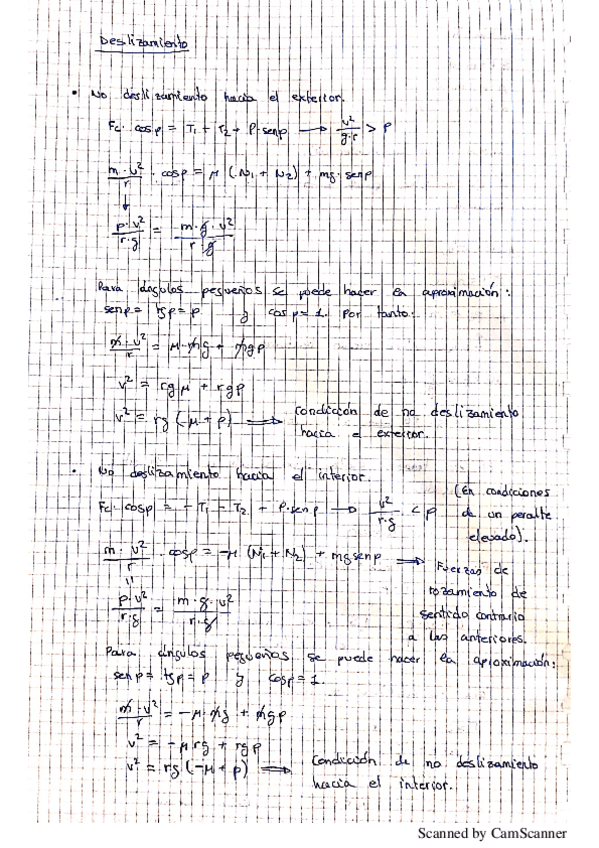 Deslizamiento
• No deslizamiento hacia el exterior.
Fc · cosp = T₁ + T₂ + P·senp → v²/g·r > p
m·v²/r · cosp = μ (N₁ + N₂) + mg·senp
↓
p·v²/r·g = m·g·v²/r·g
Para ángulos pequeños se puede hacer la aproximación:
senp = tgp = p y cosp = 1. Por tanto:
m·v²/r = μ·mg + mgp
v² = rgμ + rgp
v² = rg (μ + p) ⇒ condición de no deslizamiento
hacia exterior.
• No deslizamiento hacia el interior.
Fc · cosp = -T₁ - T₂ + P·senp → v²/r·g < p (En condiciones
de un peralte
elevado).
m·v²/r · cosp = -μ (N₁ + N₂) + mg senp ⇒ Fuerzas de
rozamiento de
sentido contrario
a las anteriores.
p·v²/r·g = m·g·v²/r·g
Para ángulos pequeños se puede hacer la aproximación:
senp = tgp = p y cosp = 1.
m·v²/r = -μ·mg + mgp
v² = -μrg + rgp
v² = rg (-μ + p) ⇒ Condición de no deslizamiento
hacia el interior.
Scanned by CamScanner